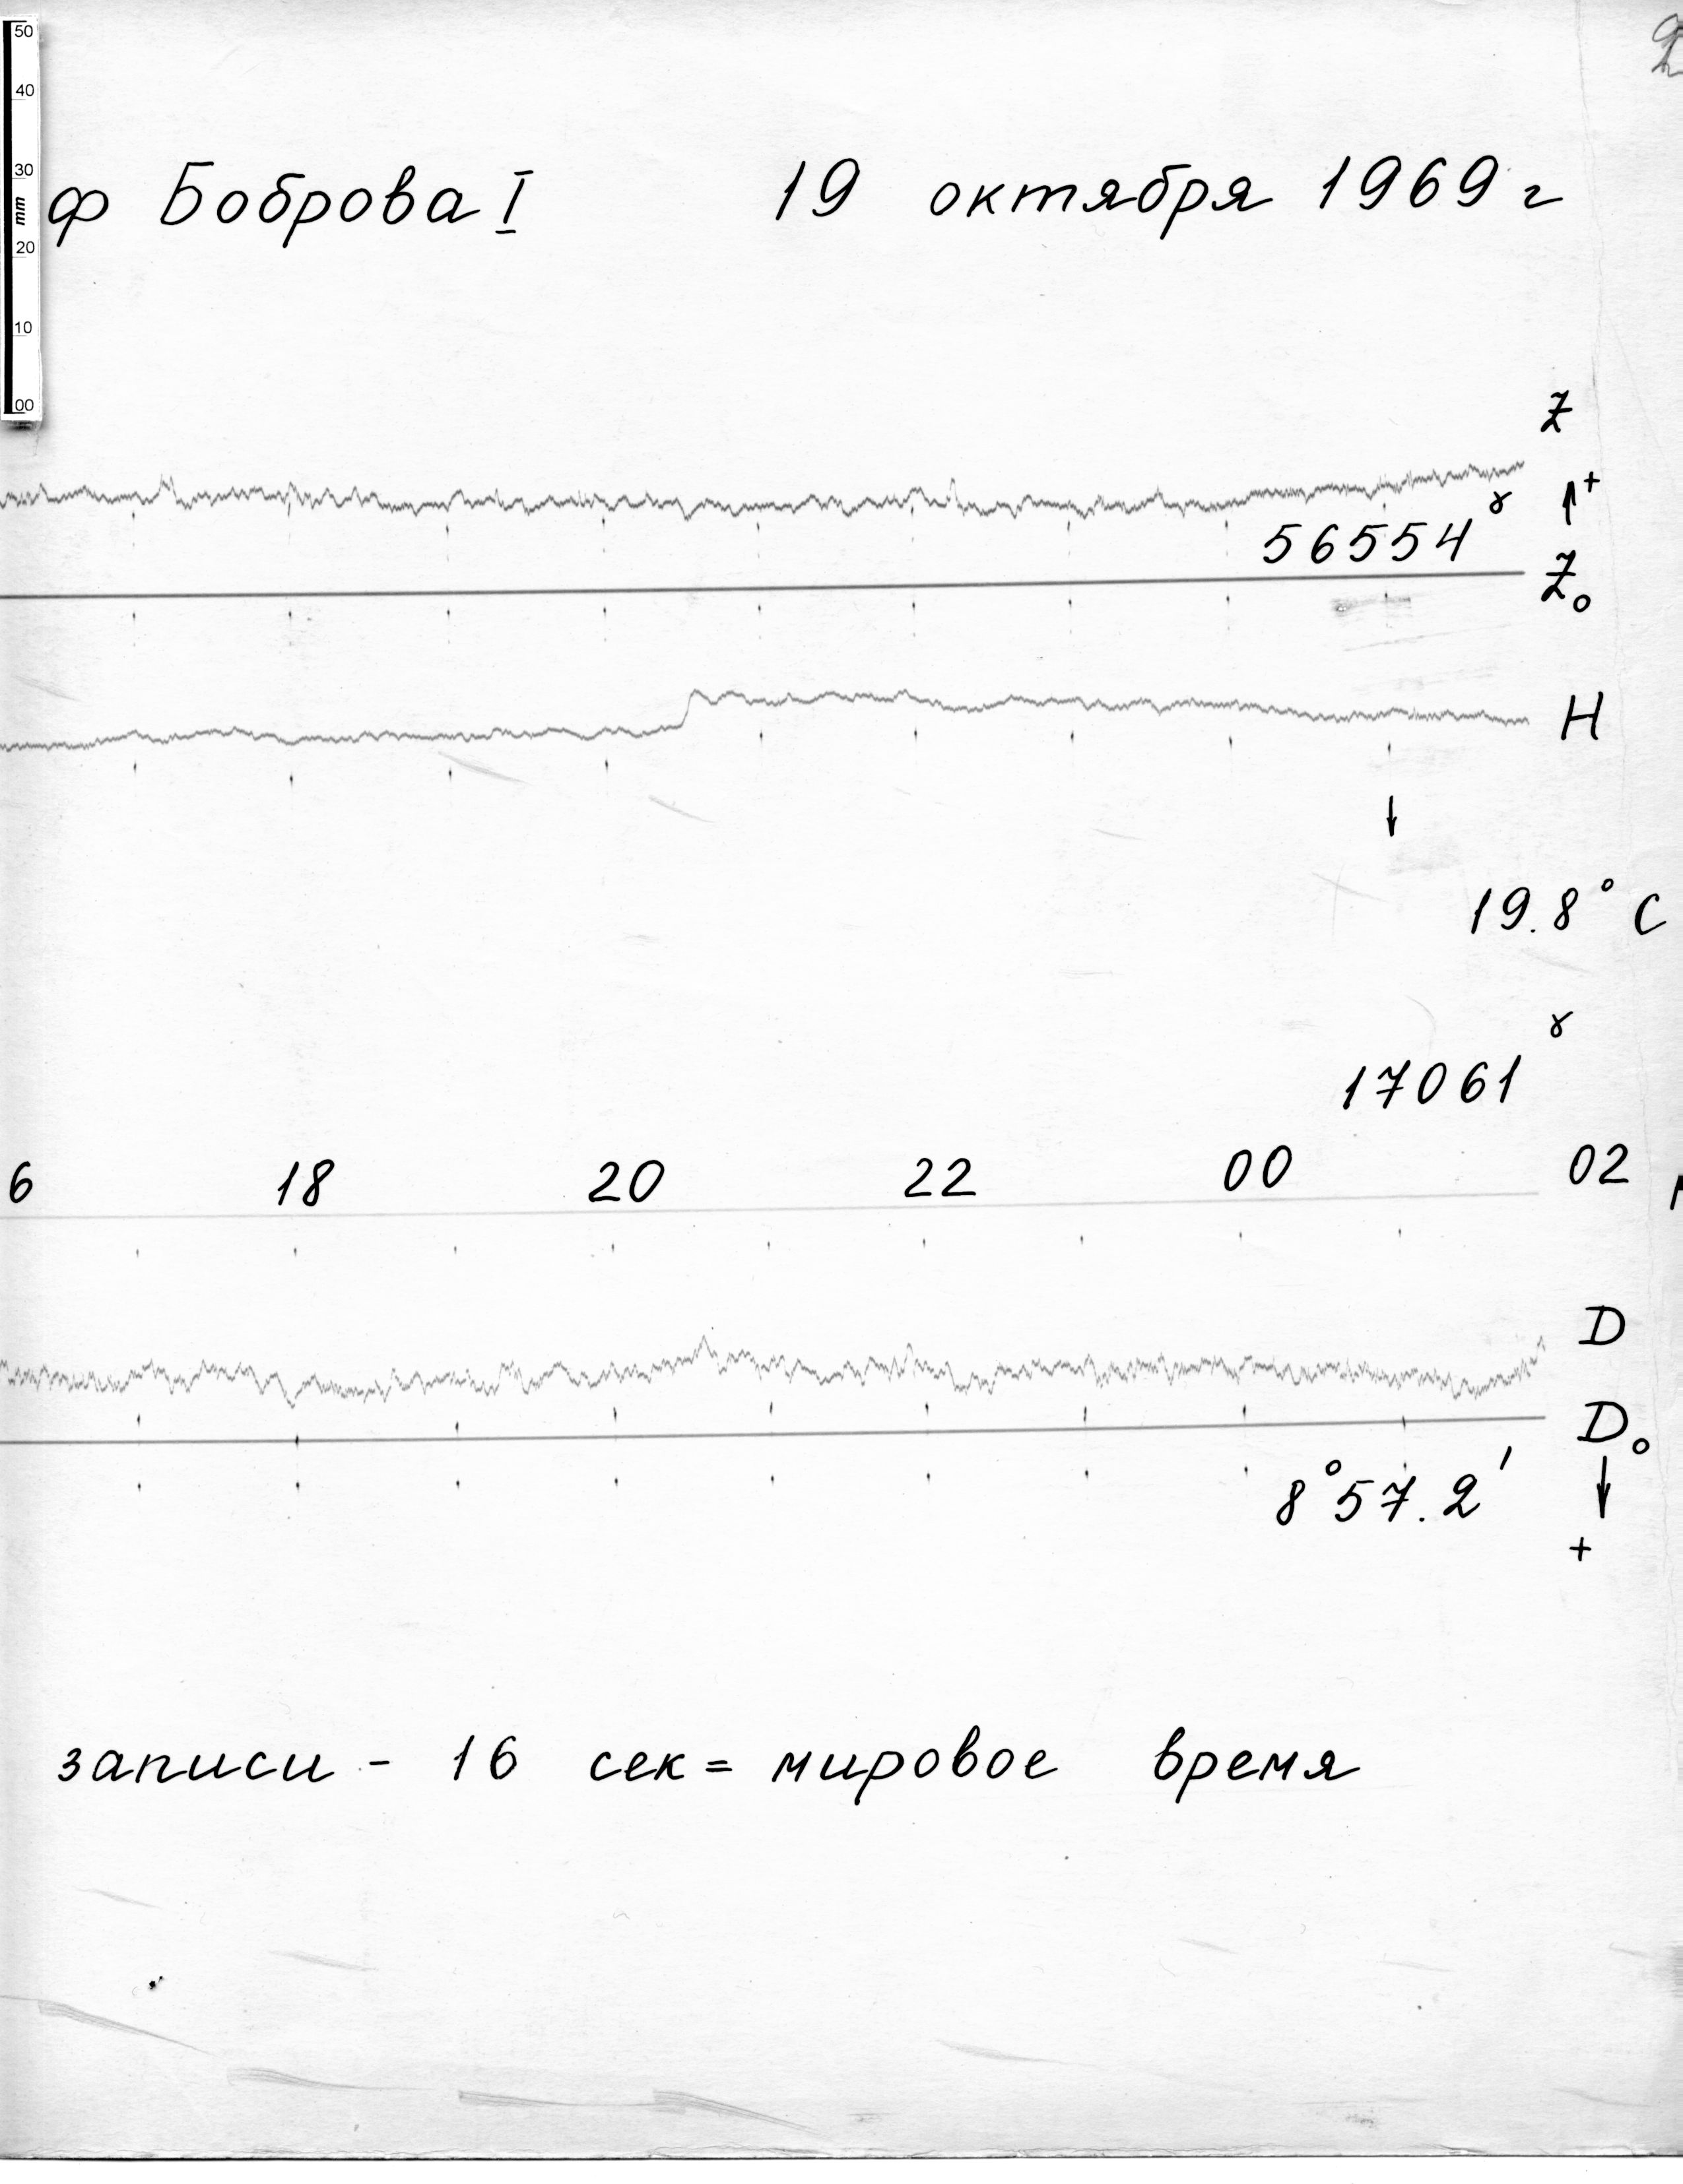 50
40
30
mm
20
10
00
ф Боброва I 19 октября 1969 г
Z
+
56554 γ
Z₀
H
19.8° C
17061 γ
6 18 20 22 00 02
D
D₀
8°57.2'
+
записи - 16 сек = мировое время